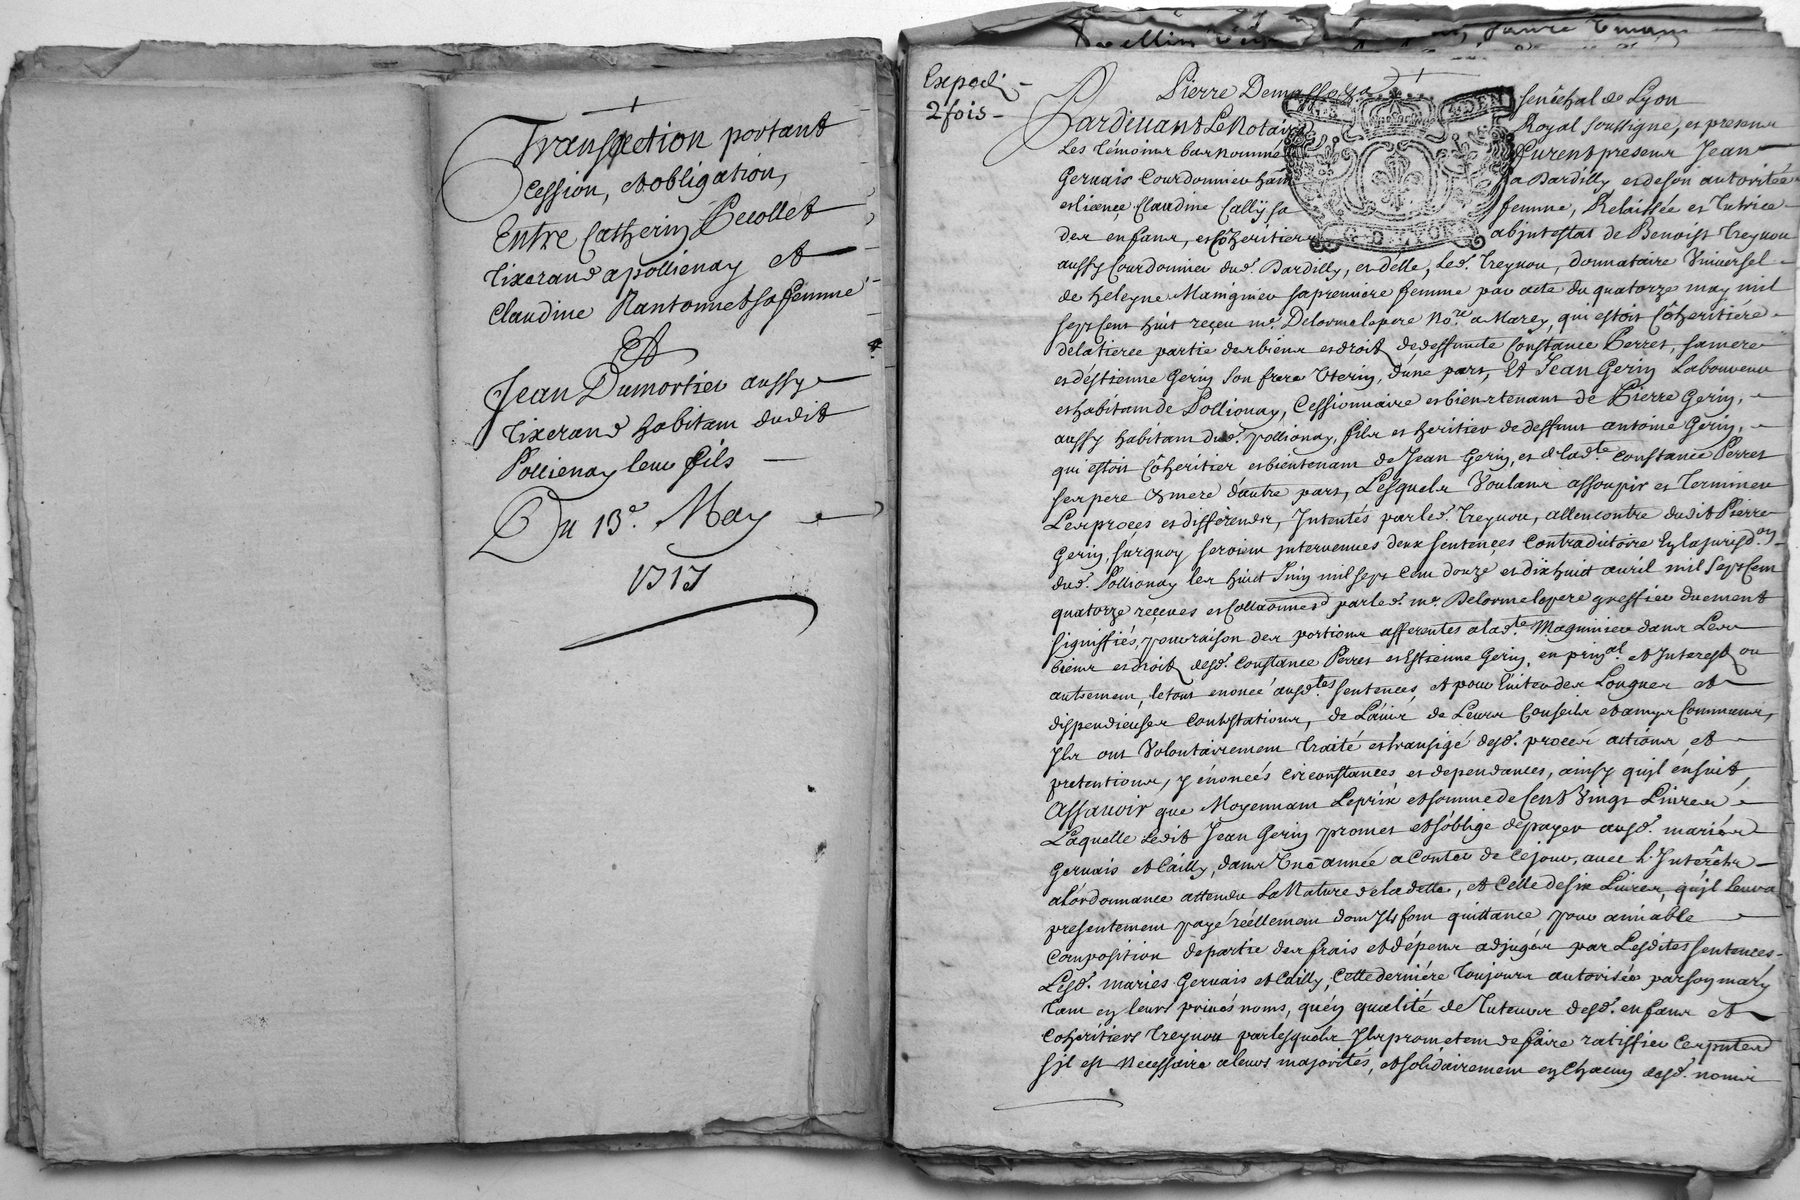 Transaction portant
Cession, et obligation,
Entre Catherin Decollet
Tixerand a pollienay et
Claudine Nantonnet sa femme
Et
Jean Dumortier aussy
tixerand habitam dudit
Pollienay leur fils
Du 13e. May
1717
Expedié
2 fois
Pierre Demasso sénéchal de Lyon
Pardevant Le Notaire Royal soussigné, et presens
Les témoins bas nommés furent presens Jean
Gervais Courdonnier ha a Dardilly, et de son autoritée
et licence Claudine Cailly sa femme, Relaissée et tutrice
des enfans, et cohéritiers ab intestat de Benoist Treynou
aussy Courdonnier dud. Dardilly, et d'elle, led. Treynou, donnataire Universel
de heleyne Magninier sa premiere femme par acte du quatorze may mil
sept cent huit reçeu me. Delorme le pere No.re a Marcy, qui estoit cohéritiére
de la tierce partie des biens et droits de deffuncte Constance Perret, sa mere
et d'éstienne Gerin son frere Uterin, d'une part, Et Jean Gerin Laboureur
et habitam de Pollionay, Cessionnaire et bientenant de Pierre Gerin,
aussy habitam dud. pollionay, fils et heritier de deffunt antoine Gerin,
qui estoit cohéritier et bientenant de Jean Gerin, et de lad.te Constance Perret
ses pere et mere d'autre part, Lesquels Voulans assoupir et Terminer
Les procés et différends, Intentés par led. Treynou, allencontre dudit Pierre
Gerin, sur quoy seroient intervenues deux sentences contradictoire En la jurisd.on
dud. Pollionay les huit Juin mil sept cent douze et dix huit avril mil sept cent
quatorze reçeues et Collaonnées par led. me. Delorme le pere greffier duement
signiffiés, pour raison des portions afferentes a lad.te Magninier dans Les
biens et droits desd. Constance Perret et Estienne Gerin, en prinal. et Interest ou
autrement, le tout enoncé ausd.tes sentences, et pour Eviter des Longues et
dispendieuses Contestations, de L'avis de Leurs Conseils et amys Communs,
Ils ont Volontairement traité et transigé desd. procés actions et
pretentions, y énoncés circonstances et dependances, ainsy qu'il ensuit,
Assavoir que Moyennant Le prix et somme de Cent Vingt Livres
Laquelle Ledit Jean Gerin promet et s'oblige de payer ausd. mariés
Gervais et Cailly, dans Une année a Conter de Ce jour, avec l'Interêts
a l'ordonnance attendu La Nature de la dette, et Celle de six Livres, qu'il leur a
presentement payé réellement dont Ils font quittance pour amiable
Composition de partie des frais et dépens adjugés par Lesdites sentences
Lesd. mariés Gervais et Cailly, Cette derniére toujours autorisée par son mary
tam en leurs privés noms, qu'en qualité de Tuteurs desd. enfans et
cohéritiers Treynou par lesquels Ils prometent de faire ratiffier Ces pntes
s'il est Necessaire a leurs majorités, et solidairement en Chacun desd. noms